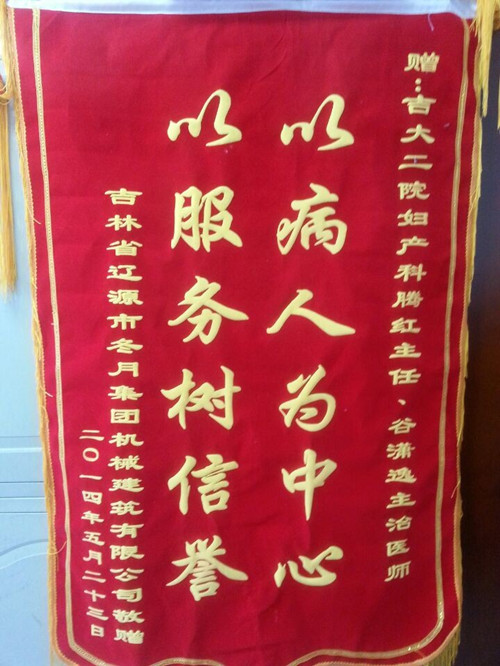 赠：吉大二院妇产科腾红主任、谷潇逸主治医师
以病人为中心
以服务树信誉
吉林省辽源市冬月集团机械建筑有限公司敬赠
二〇一四年五月二十三日